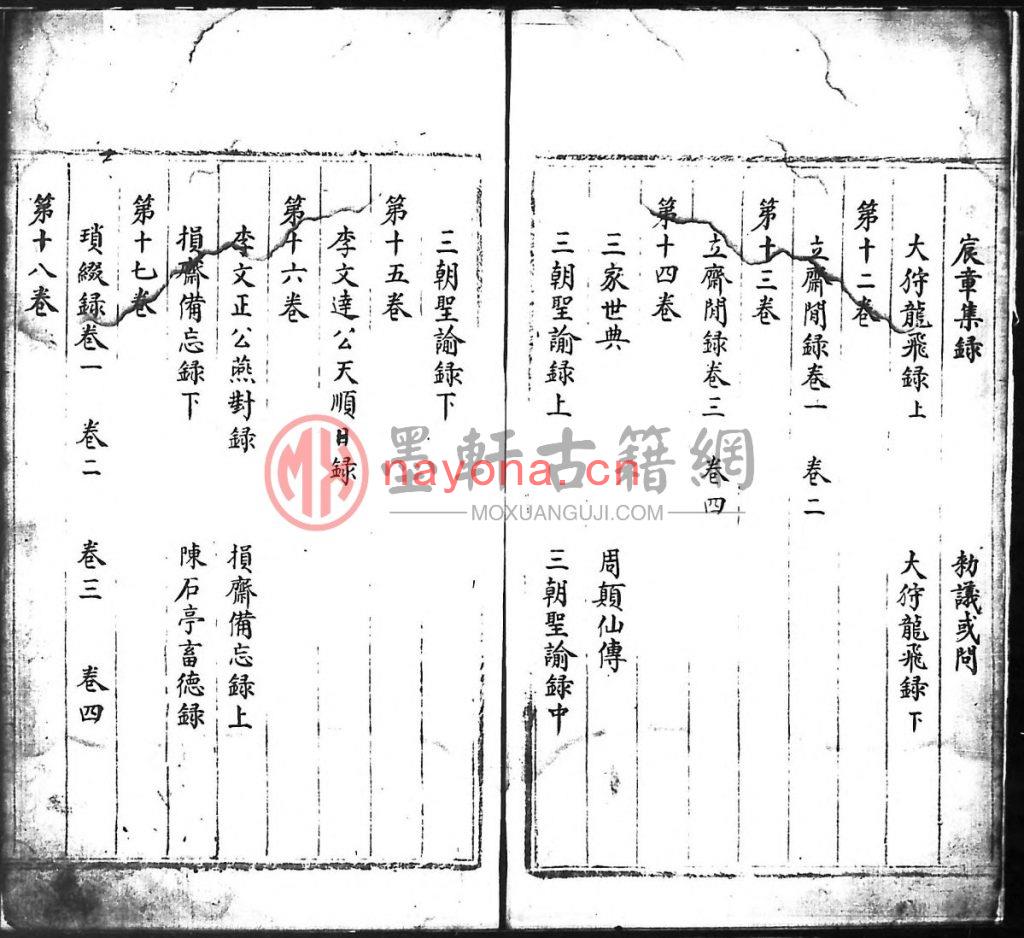 宸章集録　勑議或問
大狩龍飛録上　大狩龍飛録下
第十二卷
立齋閒録卷一　卷二
第十三卷
立齋閒録卷三　卷四
第十四卷
三家世典　周顛仙傳
三朝聖諭録上　三朝聖諭録中
三朝聖諭録下
第十五卷
李文達公天順日録
第十六卷
李文正公燕對録　損齋備忘録上
損齋備忘録下　陳石亭畜德録
第十七卷
瑣綴録卷一　卷二　卷三　卷四
第十八卷
墨軒古籍網
nayona.cn
MOXUANGUJI.COM